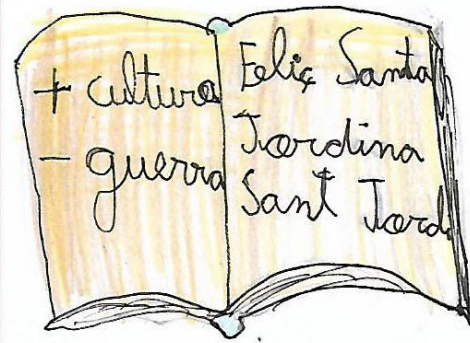 + cultura
- guerra
Feliç Santa
Jordina
Sant Jordi